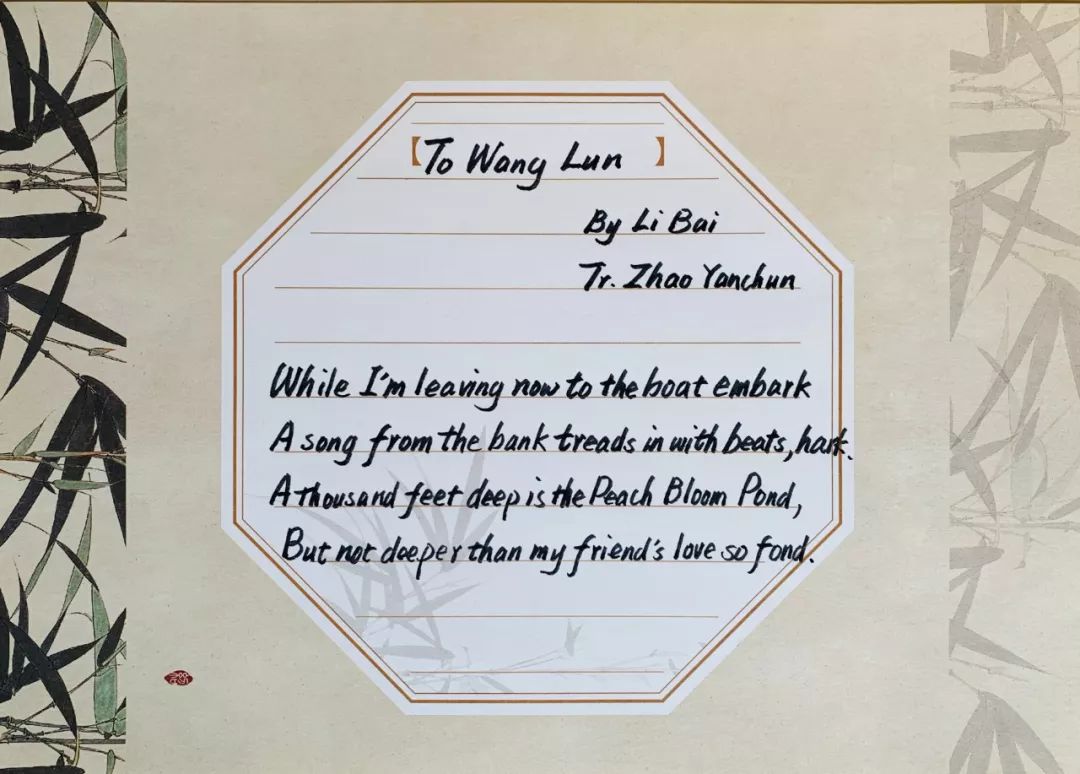 【To Wang Lun】
By Li Bai
Tr. Zhao Yanchun
While I'm leaving now to the boat embark
A song from the bank treads in with beats, hark.
A thousand feet deep is the Peach Bloom Pond,
But not deeper than my friend's love so fond.